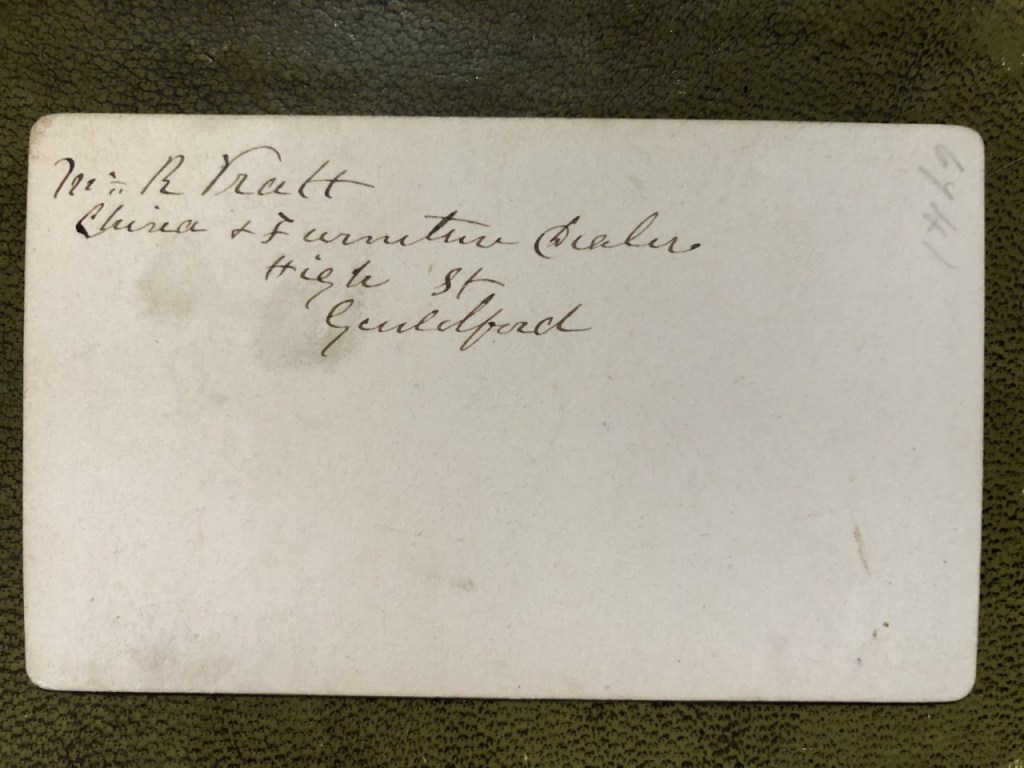 Mr R Pratt
China & Furniture Dealer
High St
Guildford